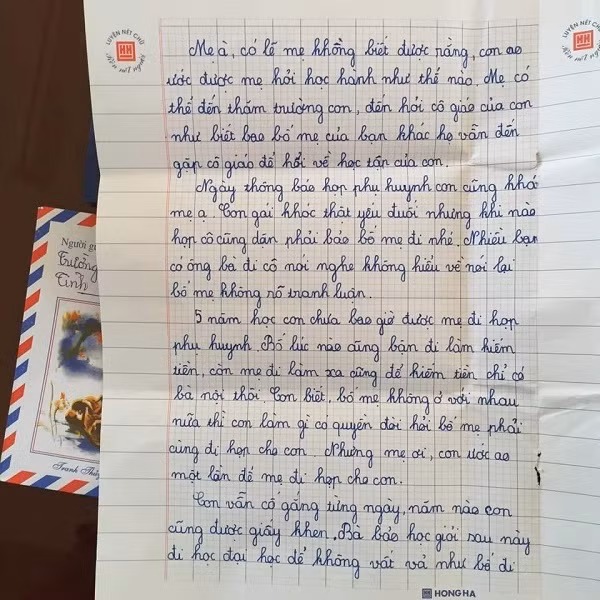 LUYỆN NÉT CHỮ
HH
Mẹ à, có lẽ mẹ không biết được rằng, con ao
ước được mẹ hỏi học hành như thế nào. Mẹ có
thể đến thăm trường con, đến hỏi cô giáo của con
như biết bao bố mẹ của bạn khác họ vẫn đến
gặp cô giáo để hỏi về học tấn của con.
Ngày thông báo họp phụ huynh con cũng khó
mẹ ạ. Con gái khóc thật yếu đuối nhưng khi nào
họp cô cũng dán phải bảo bố mẹ đi nhé. Nhiều bạn
có ông bà đi cô nói nghe không hiểu về nói lại
bố mẹ không rõ tranh luận.
5 năm học con chưa bao giờ được mẹ đi họp
phụ huynh. Bố lúc nào cũng bận đi làm kiếm
tiền, còn mẹ đi làm xa cũng để kiếm tiền chỉ có
bà nội thôi. Con biết, bố mẹ không ở với nhau
nữa thì con làm gì có quyền đòi hỏi bố mẹ phải
cùng đi họp cho con. Nhưng mẹ ơi, con ước ao
một lần để mẹ đi họp cho con.
Con vẫn cố gắng từng ngày, năm nào con
cũng được giấy khen. Bà bảo học giỏi sau này
đi học đại học để không vất vả như bố đi
HONG HA
Người gử
Trường
Tình
Tranh Thủy
LUYỆN NÉT CHỮ
HH